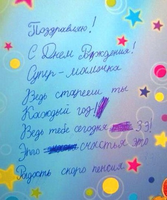 Поздравляю!
С Днем Рождения!
Супер-мамочка
Ведь стареем ты
Каждый год!
Ведь тебе сегодня 33!
Это счастье это
Радость скоро пенсия